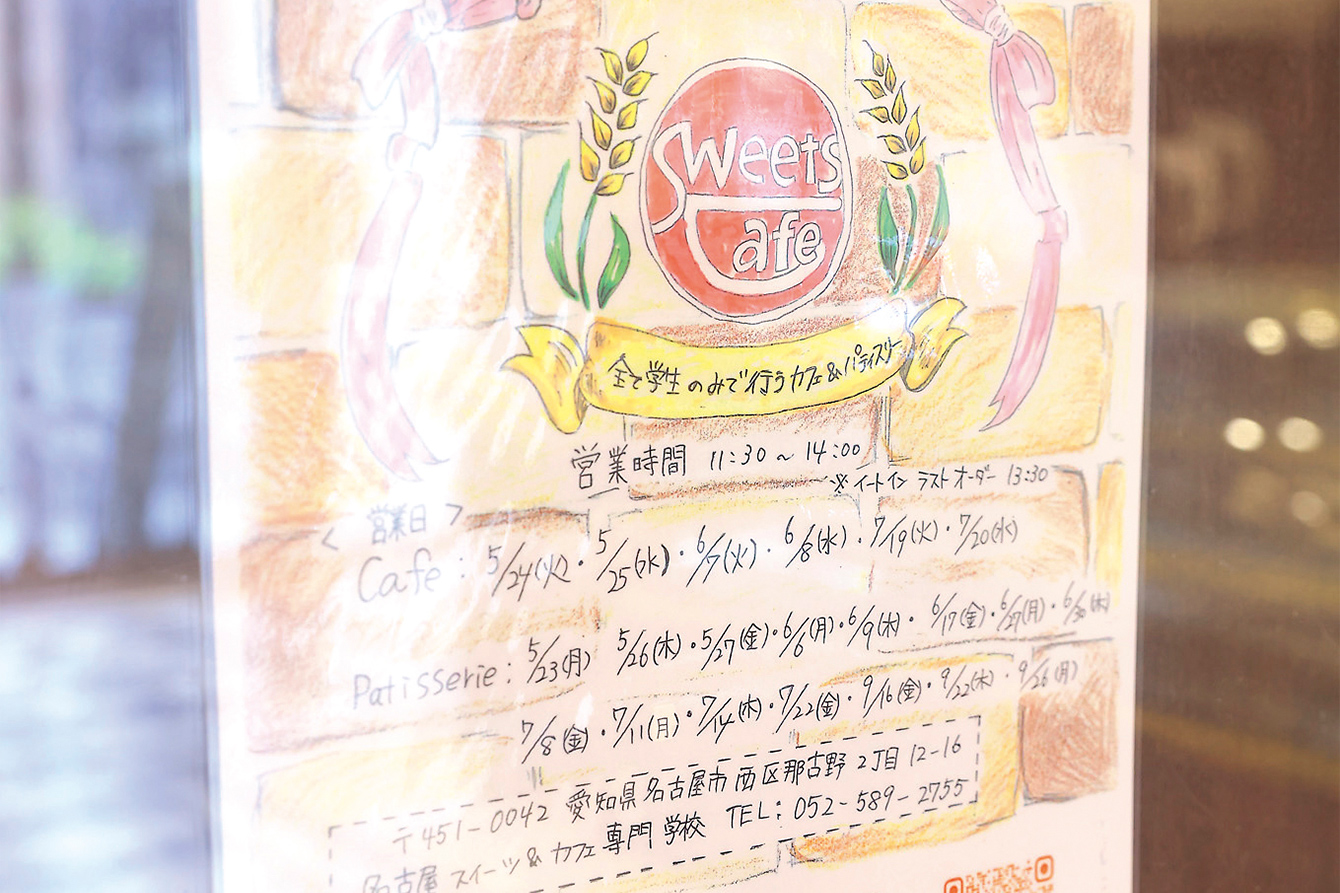 Sweets
Cafe
全て学生のみで行うカフェ&パティスリー
営業時間 11:30～14:00
※イートイン ラストオーダー 13:30
<営業日>
Cafe: 5/24(火)・5/25(水)・6/7(火)・6/8(水)・7/19(火)・7/20(水)
Patisserie: 5/23(月) 5/26(木)・5/27(金)・6/6(月)・6/9(木)・6/17(金)・6/27(月)・6/30(木)
7/8(金)・7/11(月)・7/14(木)・7/22(金)・9/16(金)・9/22(木)・9/26(月)
〒451-0042 愛知県名古屋市西区那古野2丁目12-16
名古屋スイーツ&カフェ専門学校 TEL: 052-589-2755